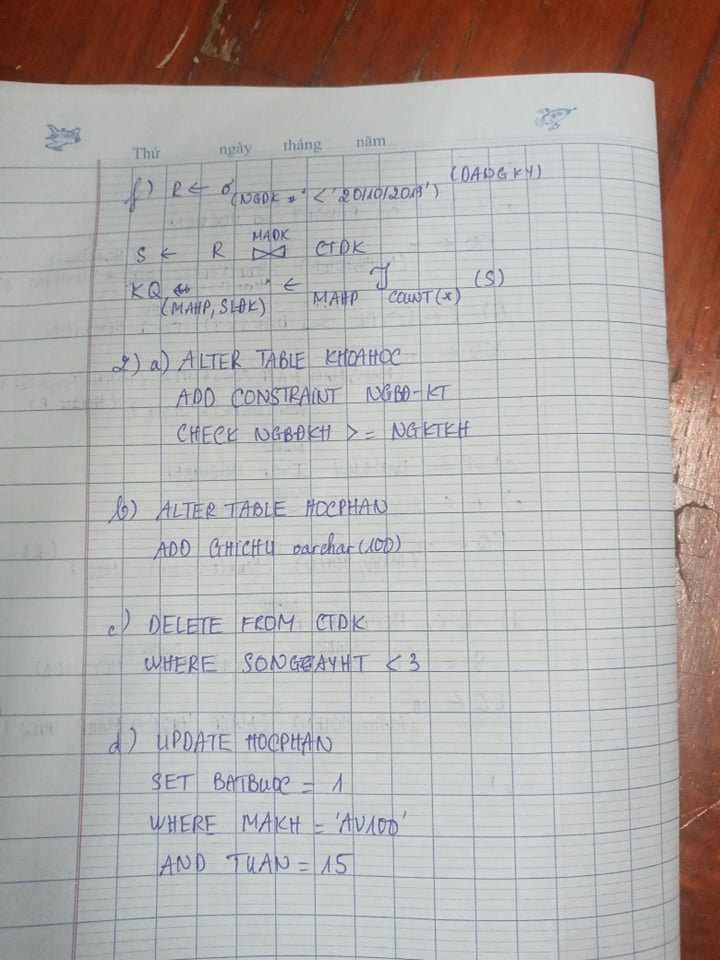 Thứ ngày tháng năm
f) R ← σ(NGDK < '20/10/2019') (DANGKY)
S ← R ⋈ MADK CTDK
KQ(MAHP, SLDK) ← MAHP ℑ COUNT(*) (S)
2) a) ALTER TABLE KHOAHOC
ADD CONSTRAINT NGBD-KT
CHECK NGBĐKH >= NGKTKH
b) ALTER TABLE HOCPHAN
ADD GHICHU varchar(100)
c) DELETE FROM CTDK
WHERE SONGAYHT < 3
d) UPDATE HOCPHAN
SET BATBUOC = 1
WHERE MAKH = 'AV100'
AND TUAN = 15